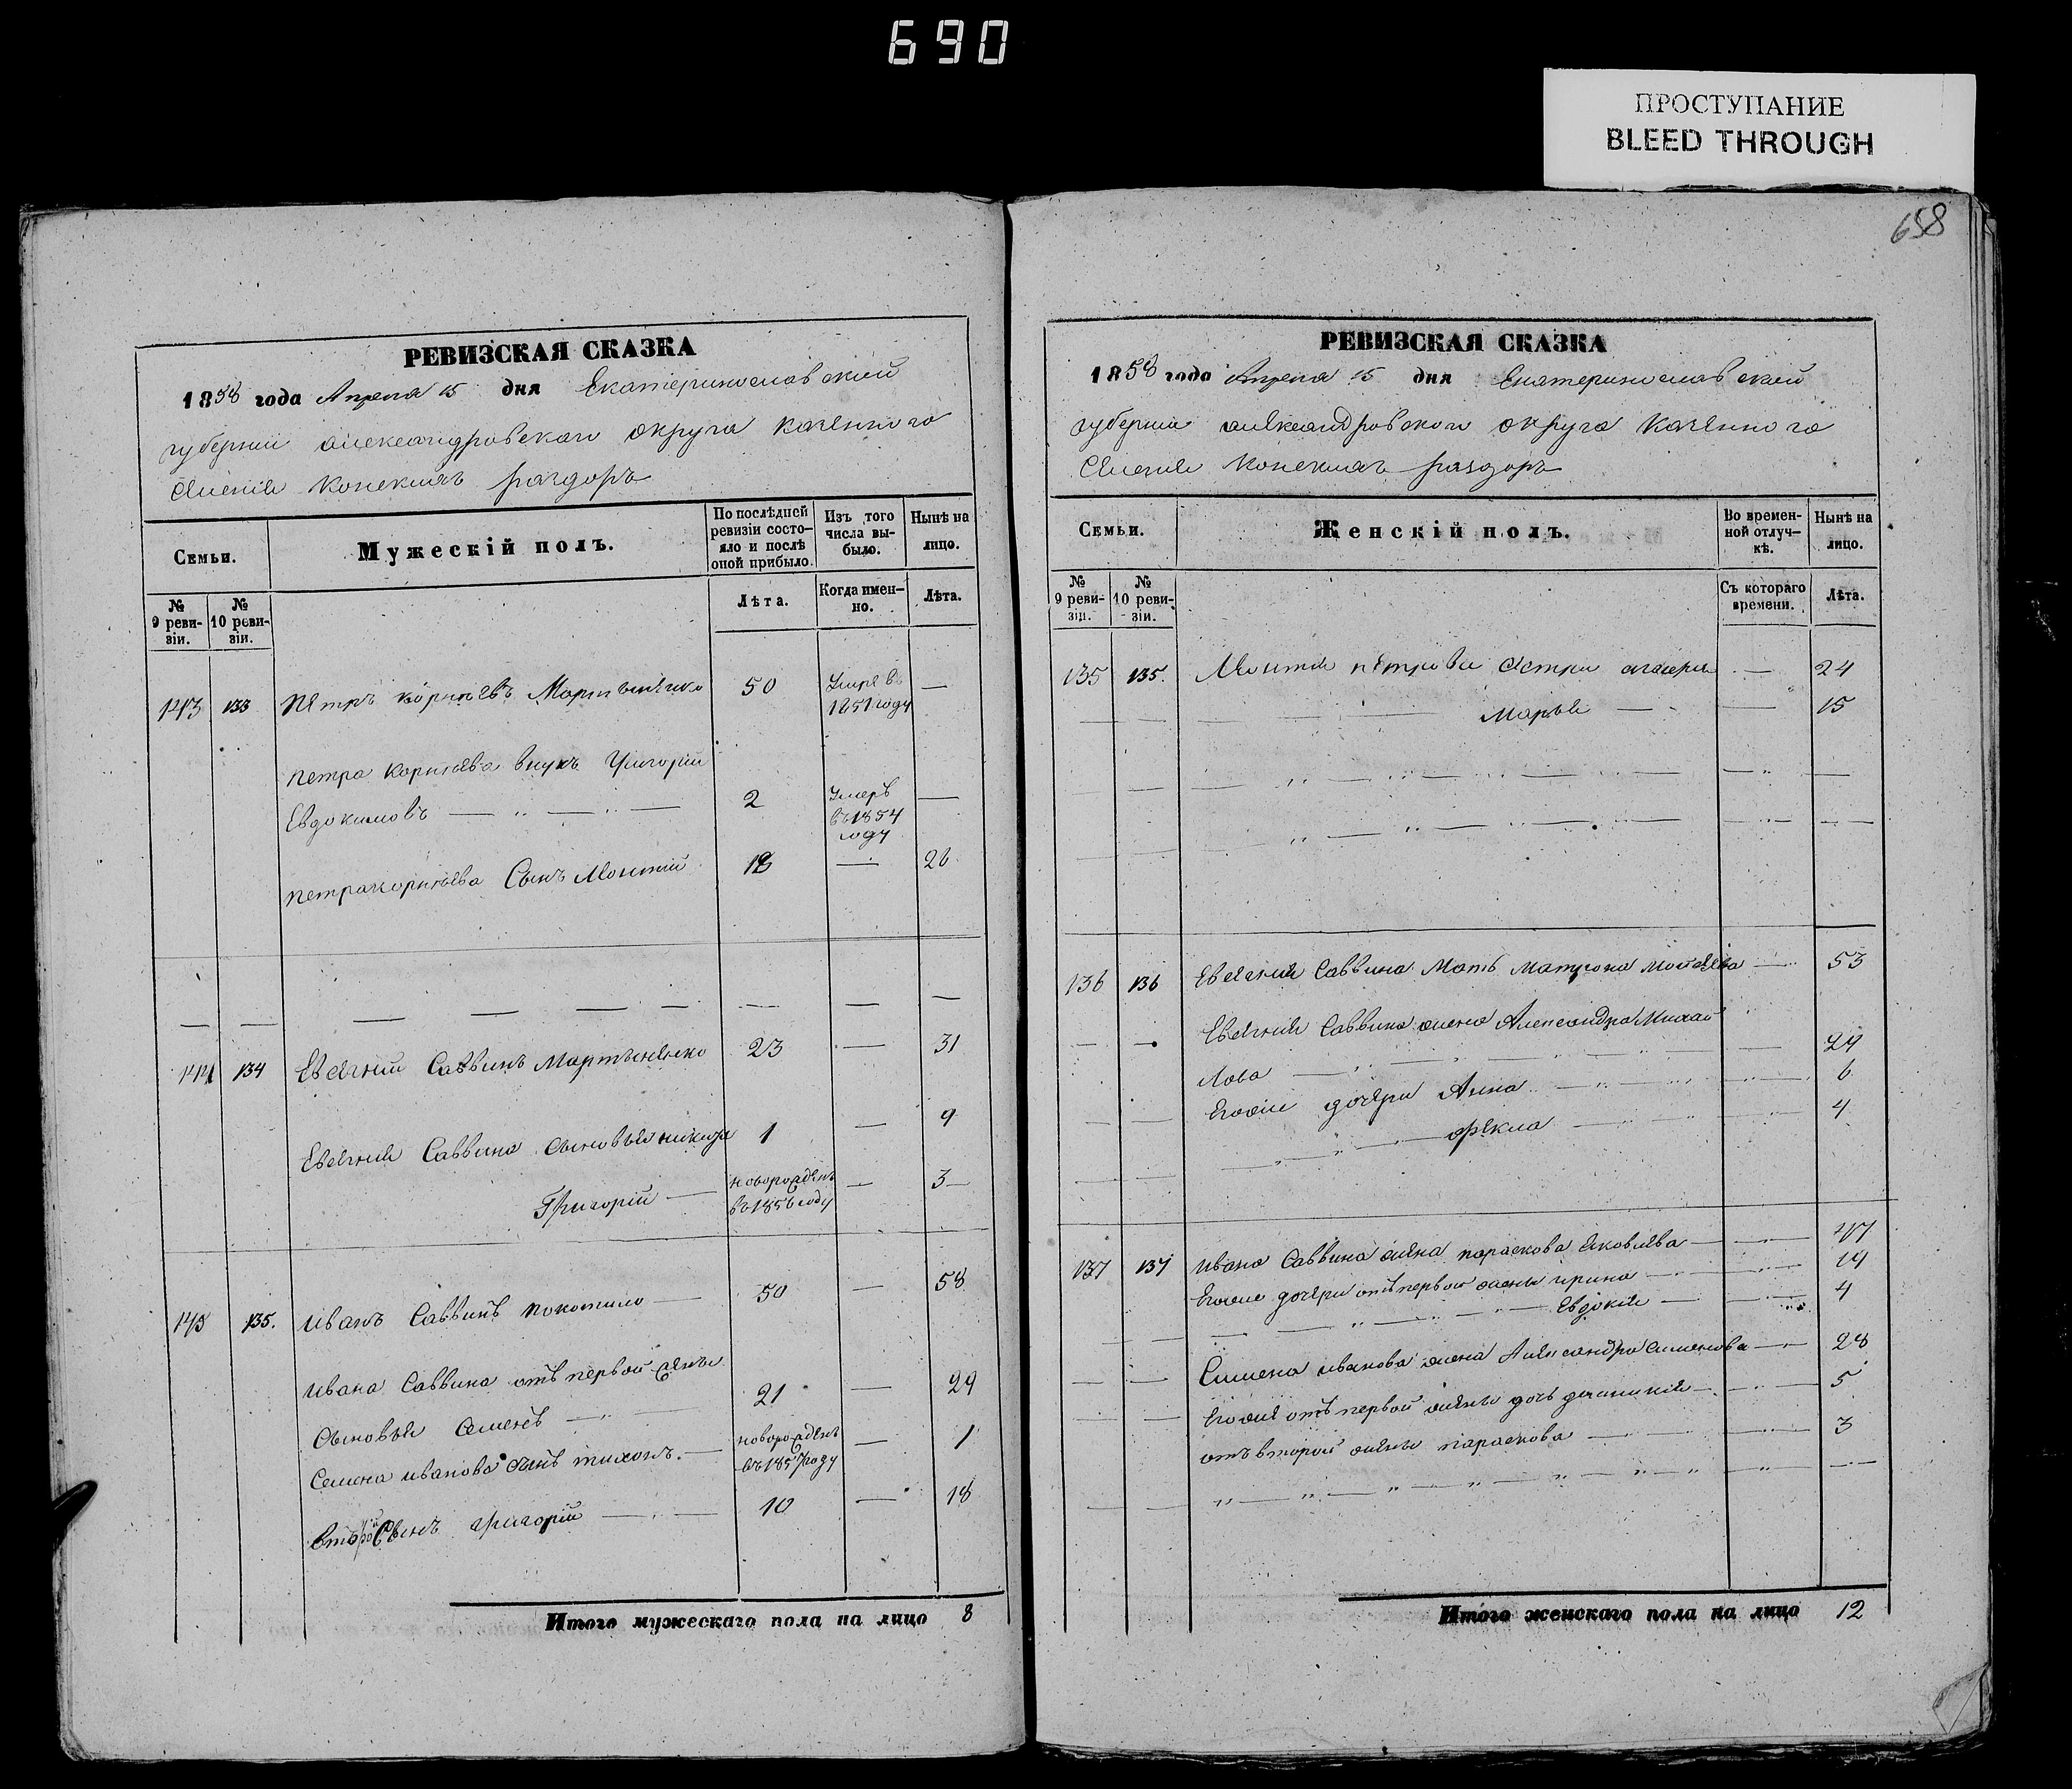 690
ПРОСТУПАНИЕ
BLEED THROUGH
658
РЕВИЗСКАЯ СКАЗКА
1858 года Апреля 15 дня Екатеринославской
губернии александровского округа казенного
селения Конскихъ раздоръ
Семьи.
Мужескій полъ.
По послѣдней ревизіи состояло и послѣ оной прибыло.
Изъ того числа выбыло.
Нынѣ на лицо.
№ 9 ревизіи.
№ 10 ревизіи.
Лѣта.
Когда именно.
Лѣта.
143 133 Петръ корнѣевъ Мартыненко 50 Умре въ 1851 году —
петра корнѣева внукъ Григорій
Евдокимовъ — 2 Умеръ въ 1854 году —
петра корнѣева Сынъ 18 — 26
144 134 Евсегній Саввинъ Мартыненко 23 — 31
Евсегнія Саввина сыновья никита 1 — 9
Григорій — новорожденъ въ 1856 году — 3
145 135. иванъ Саввинъ покотило — 50 — 58
ивана Саввина отъ первой жены
Сыновья Семенъ — 21 — 29
Семена иванова сынъ тихонъ. — новорожденъ въ 1857 году — 1
второй Сынъ григорій — 10 — 18
Итого мужескаго пола на лицо 8
РЕВИЗСКАЯ СКАЗКА
1858 года Апреля 15 дня Екатеринославской
губернии александровского округа казенного
селения Конскихъ раздоръ
Семьи.
Женскій полъ.
Во временной отлучкѣ.
Нынѣ на лицо.
№ 9 ревизіи.
№ 10 ревизіи.
Съ котораго времени.
Лѣта.
135 135. петрова сестри — 24
Марья — — 15
136 136 Евсегнія Саввина Мать Матрона — 53
Евсегнія Саввина жена Александра Михай
лова — 24
Егоже дочери Анна — 6
фекла — 4
137 137 ивана Саввина жена параскова яковлева — 47
Егоже дочери отъ первой жены ирина — 14
Евдокія — 4
Симена иванова жена Александра Сименова — 28
Егоже отъ первой жены дочь — 5
отъ второй жены параскова — 3
Итого женскаго пола на лицо 12